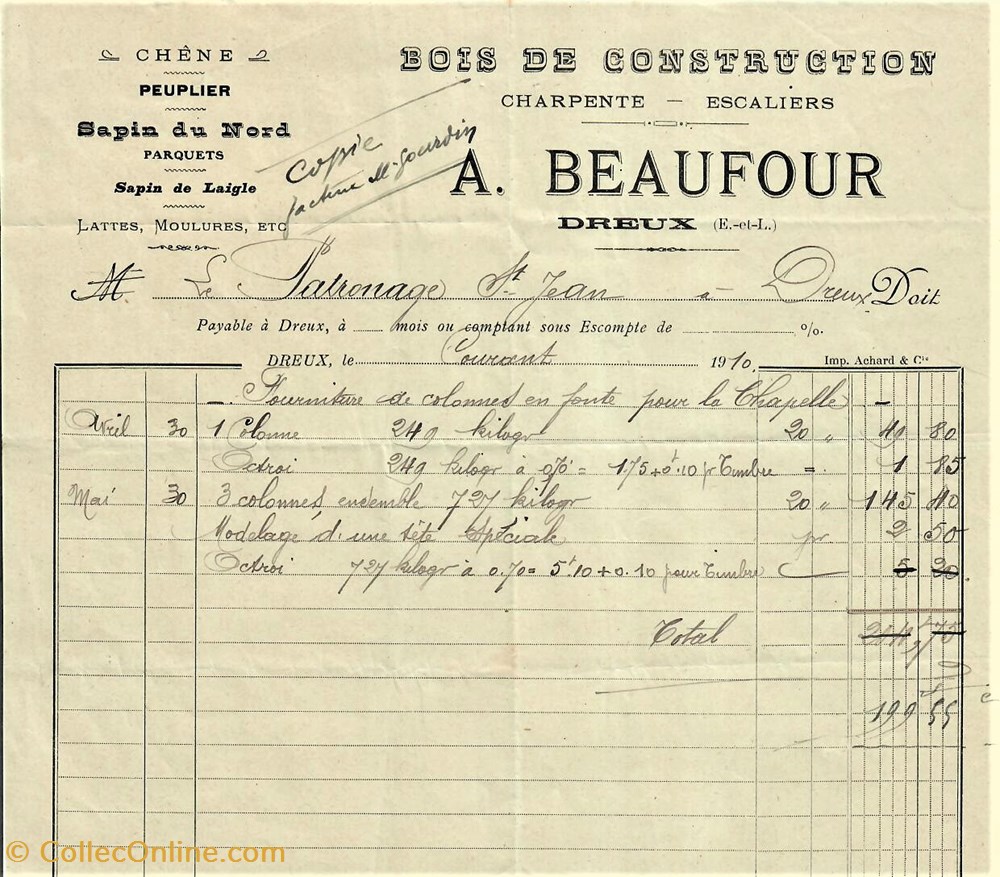 CHÊNE
PEUPLIER
Sapin du Nord
PARQUETS
Sapin de Laigle
LATTES, MOULURES, ETC
BOIS DE CONSTRUCTION
CHARPENTE — ESCALIERS
A. BEAUFOUR
DREUX (E.-et-L.)
Copie
facture M. Gourdin
M Le Patronage St Jean à Dreux Doit
Payable à Dreux, à mois ou comptant sous Escompte de %.
DREUX, le Courant 1910.
Imp. Achard & Cie
—. Fourniture de colonnes en fonte pour la Chapelle —
Avril 30 1 Colonne 249 kilogr 20 " 49 80
Octroi 249 kilogr à 0,70 = 1.75 + 0.10 pr Timbre = 1 85
Mai 30 3 colonnes ensemble 727 kilogr 20 " 145 40
Modelage d'une tête spéciale pr 2 50
Octroi 727 kilogr à 0.70 = 5.10 + 0.10 pour Timbre 5 20
Total 204 75
199 55
© CollecOnline.com